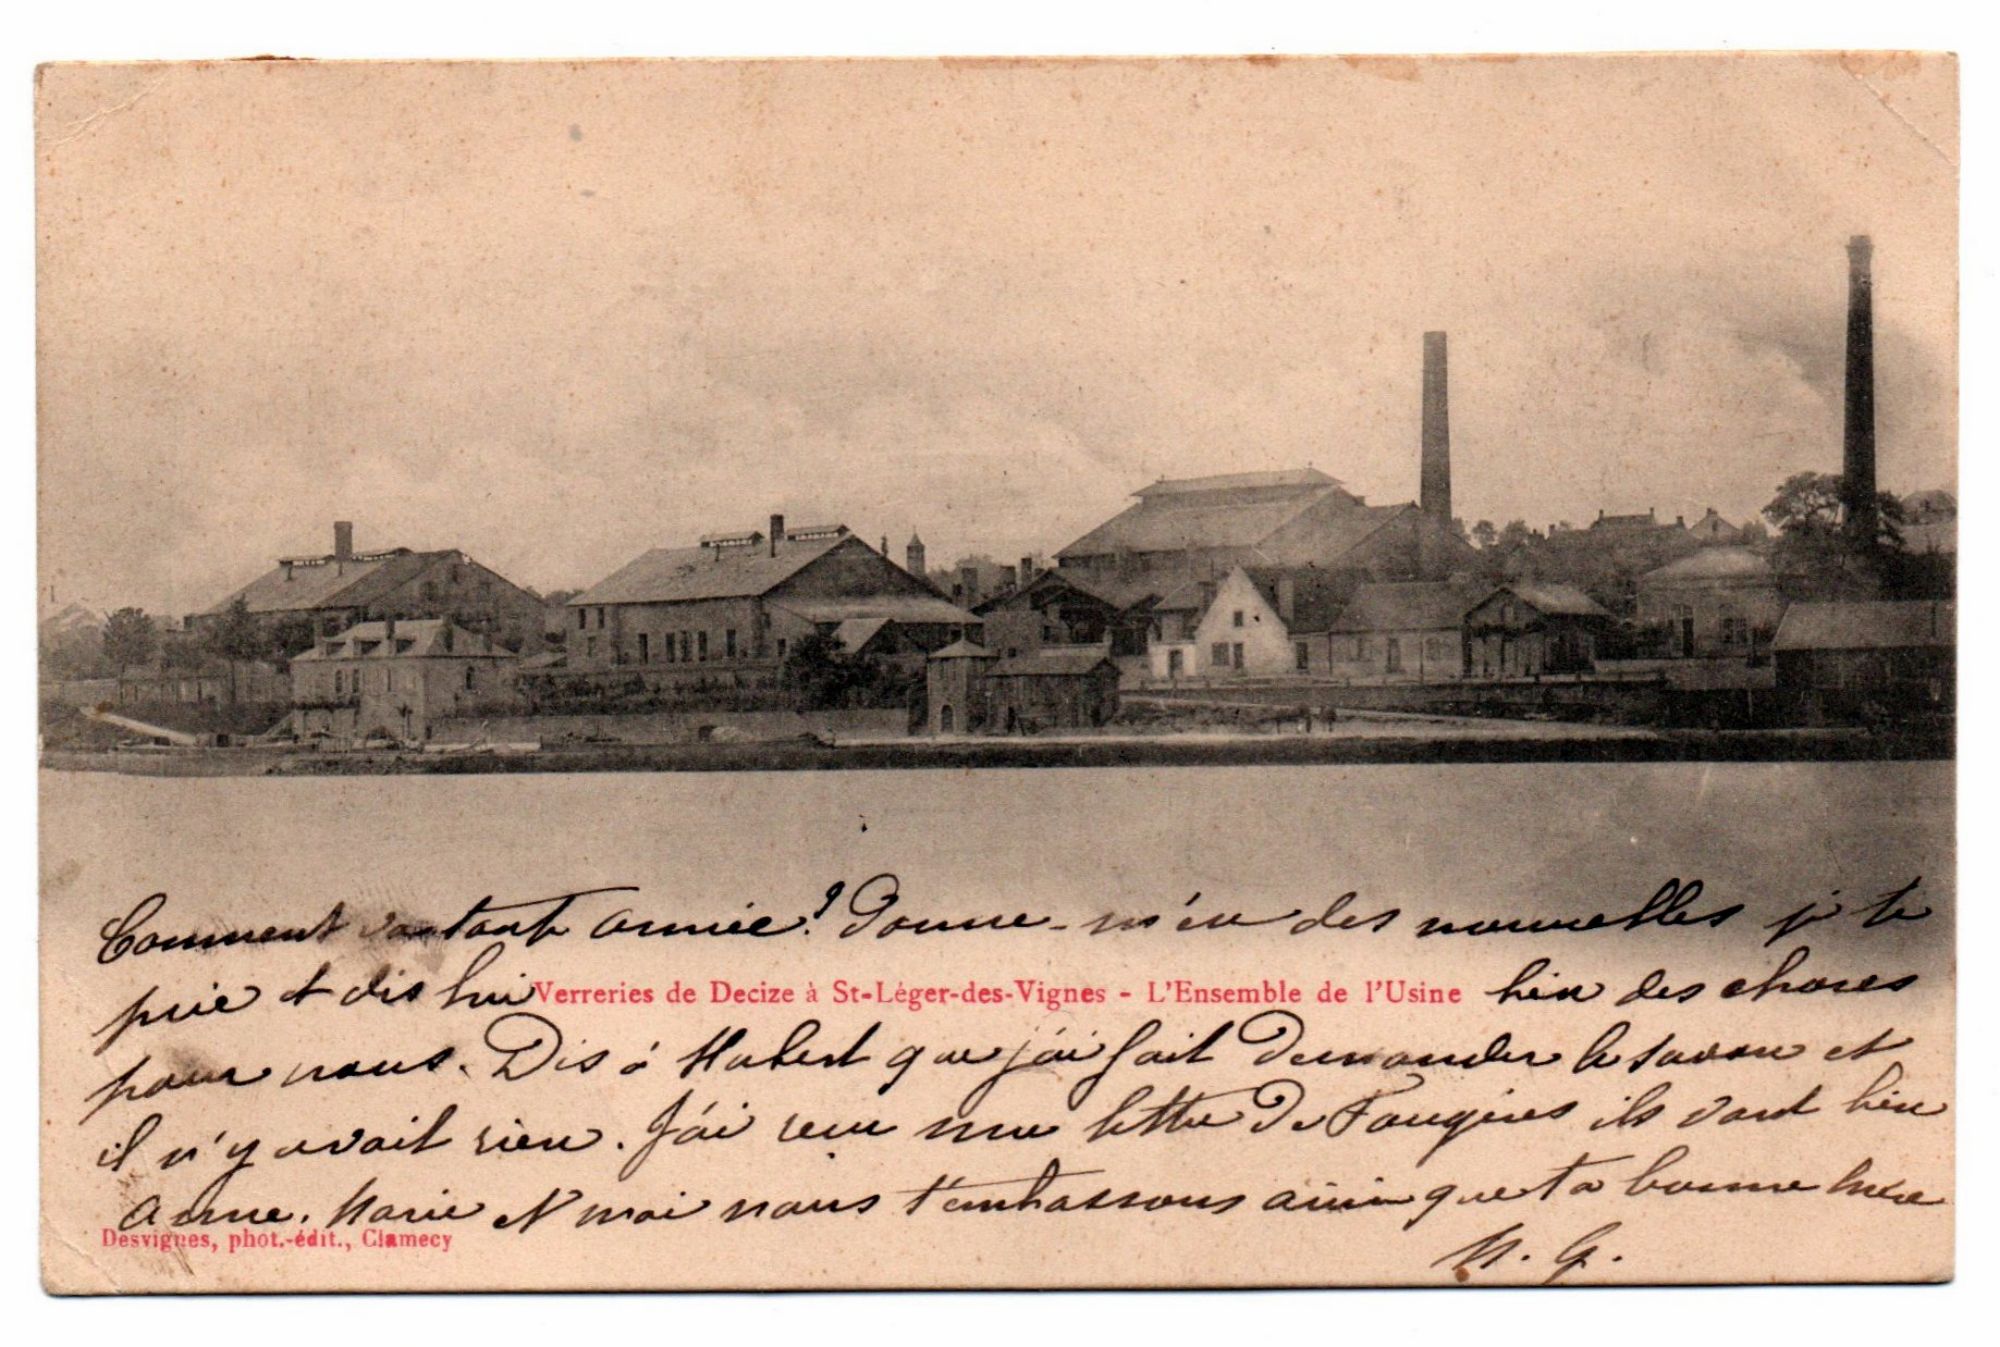 Comment va tante année? Donne-m'en des nouvelles je te
prie et dis lui bien des choses
Verreries de Decize à St-Léger-des-Vignes - L'Ensemble de l'Usine
pour nous. Dis à Hubert que j'ai fait demander le savon et
il n'y avait rien. J'ai reçu une lettre de Fougères ils vont bien
Anne. Marie et moi nous t'embrassons ainsi que ta bonne mère
Desvignes, phot.-édit., Clamecy
G.